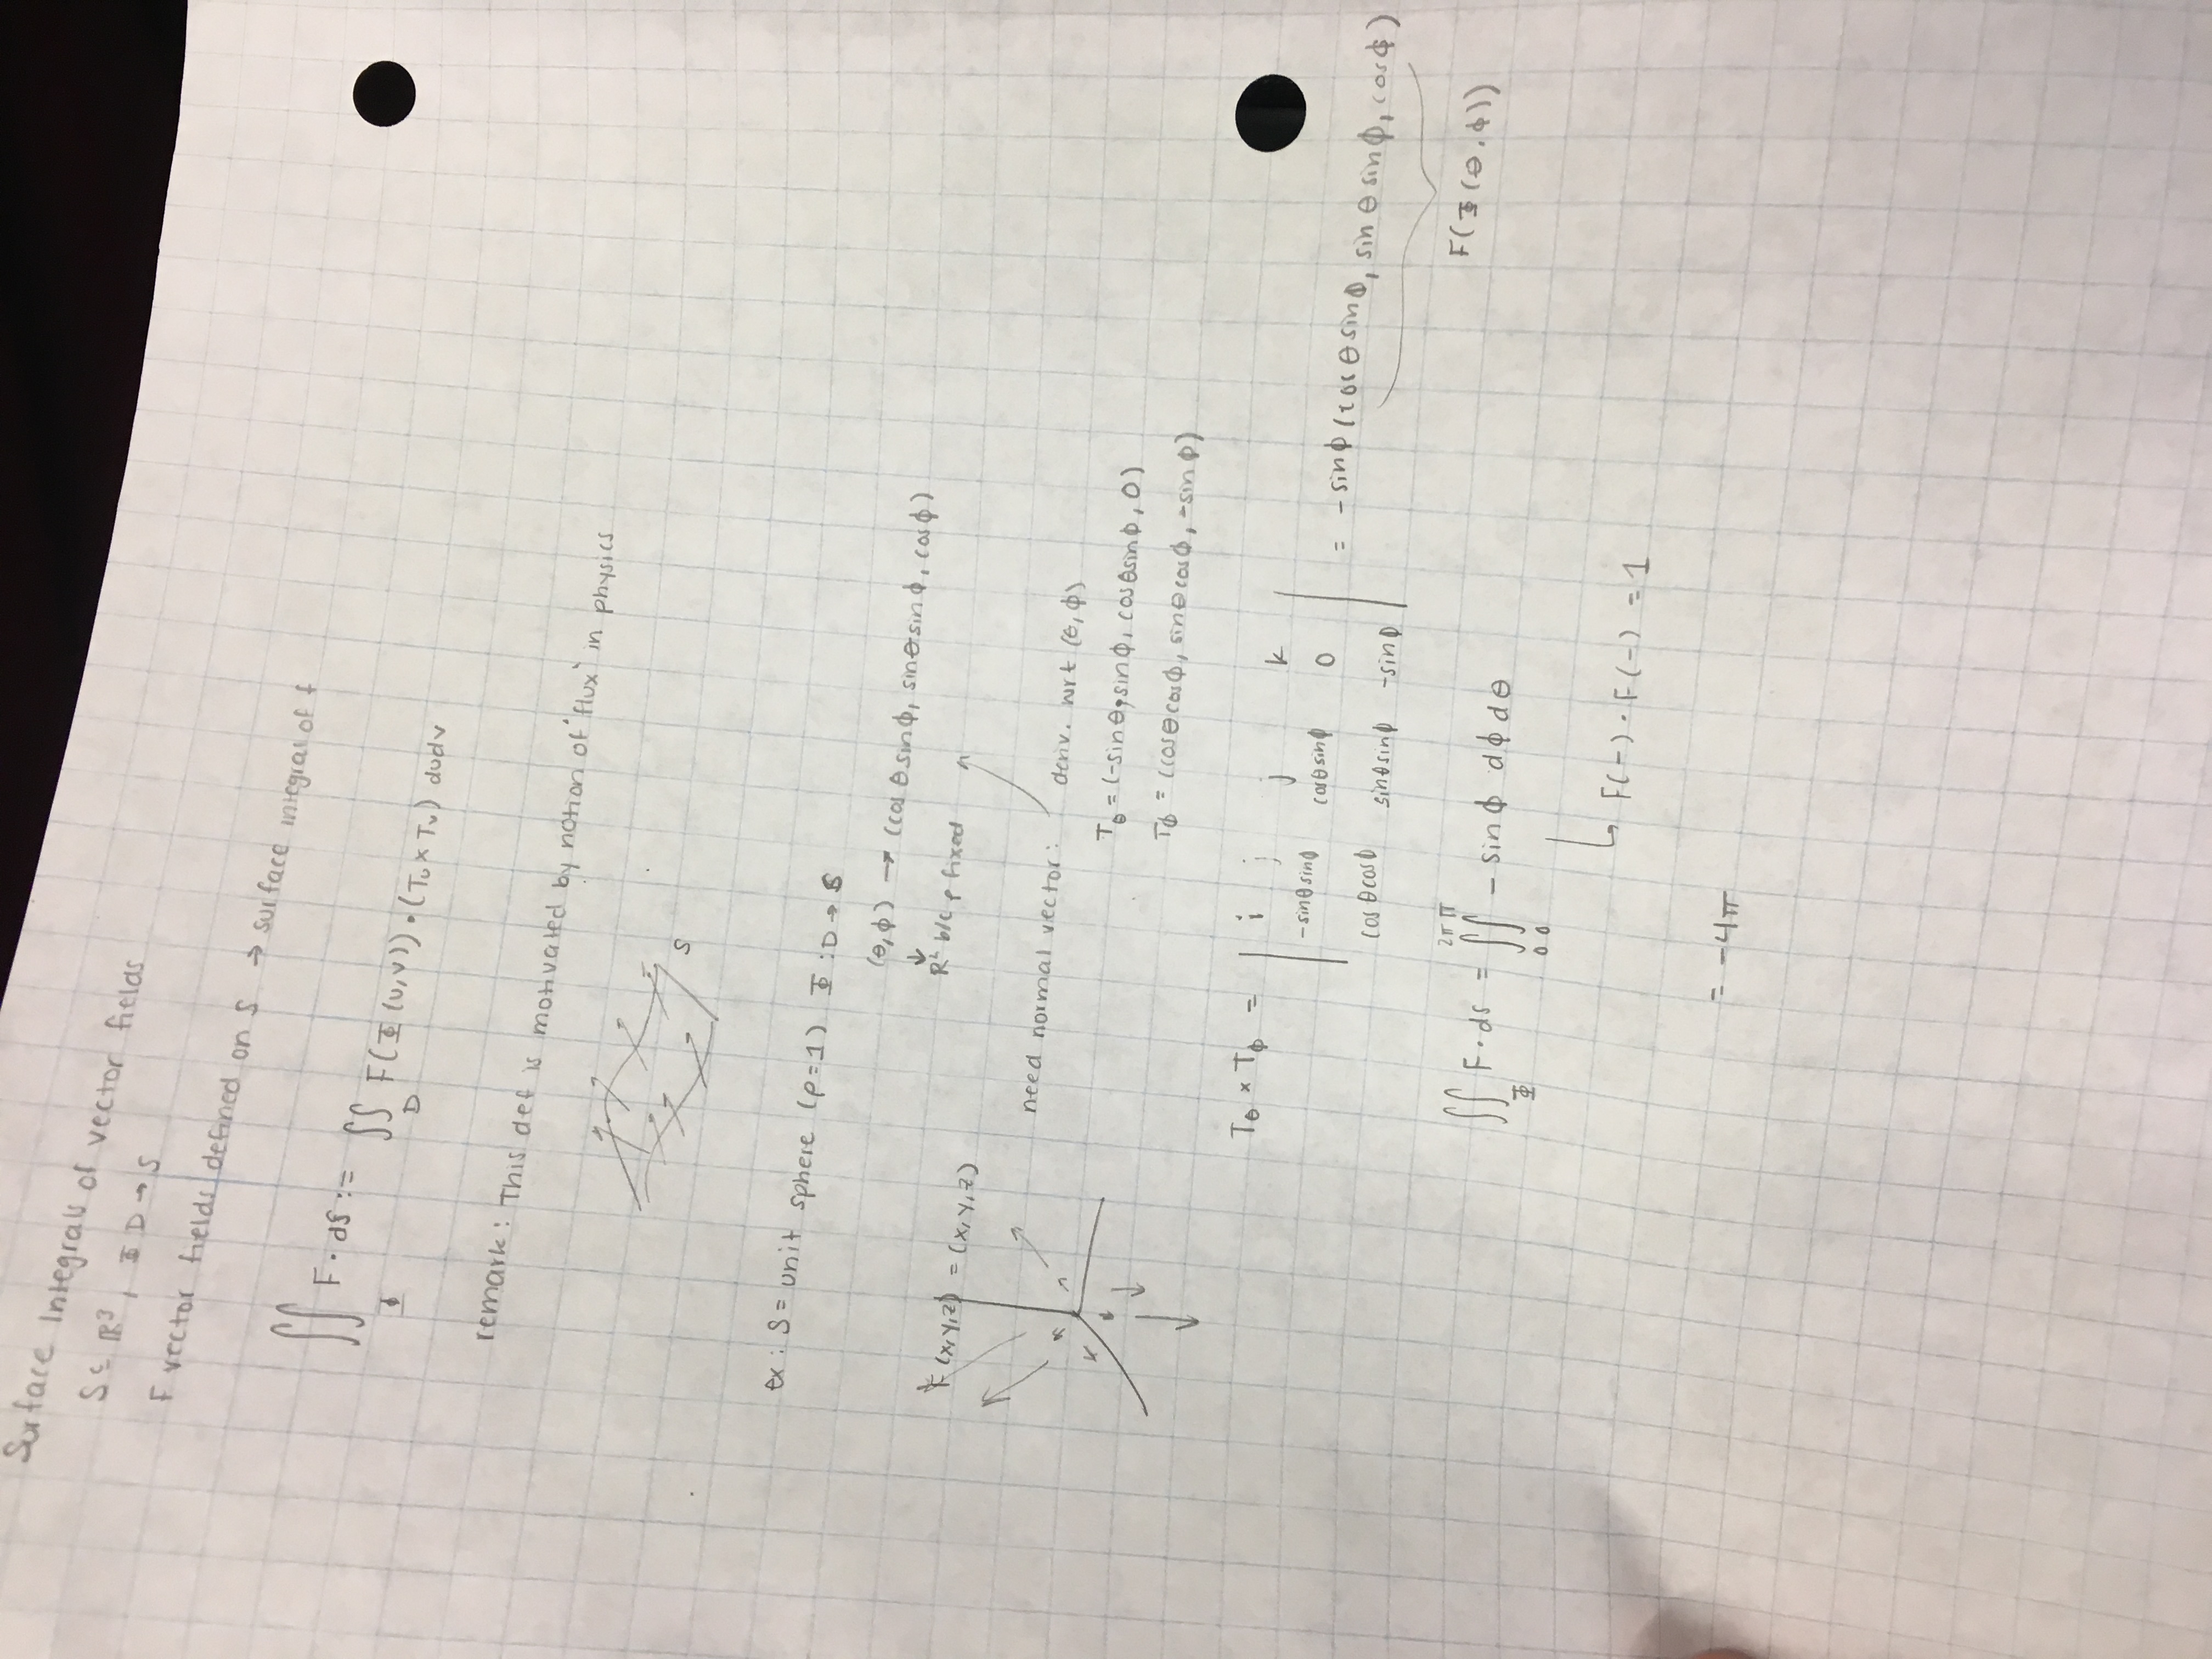 Surface Integrals of vector fields
S ⊆ ℝ³, Φ D → S
F vector fields defined on S → surface integral of f
∬_Φ F · dS := ∬_D F(Φ(u,v)) · (Tu × Tv) dudv
remark: This def is motivated by notion of "flux" in physics
S
ex: S = unit sphere (ρ=1) Φ : D → S
(θ,ϕ) → (cosθsinϕ, sinθsinϕ, cosϕ)
↓
R² b/c ρ fixed
F(x,y,z) = (x,y,z)
need normal vector: deriv. wrt (θ,ϕ)
Tθ = (-sinθ,sinϕ, cosθsinϕ, 0)
Tϕ = (cosθcosϕ, sinθcosϕ, -sinϕ)
Tθ × Tϕ = | i j j k
-sinθsinϕ cosθsinϕ 0
cosθcosϕ sinθsinϕ -sinϕ | = -sinϕ(cosθsinϕ, sinθsinϕ, cosϕ)
F(Φ(θ,ϕ))
∬_Φ F · ds = ∫₀^2π ∫₀^π -sinϕ dϕdθ
↳ F(-) · F(-) = 1
= -4π